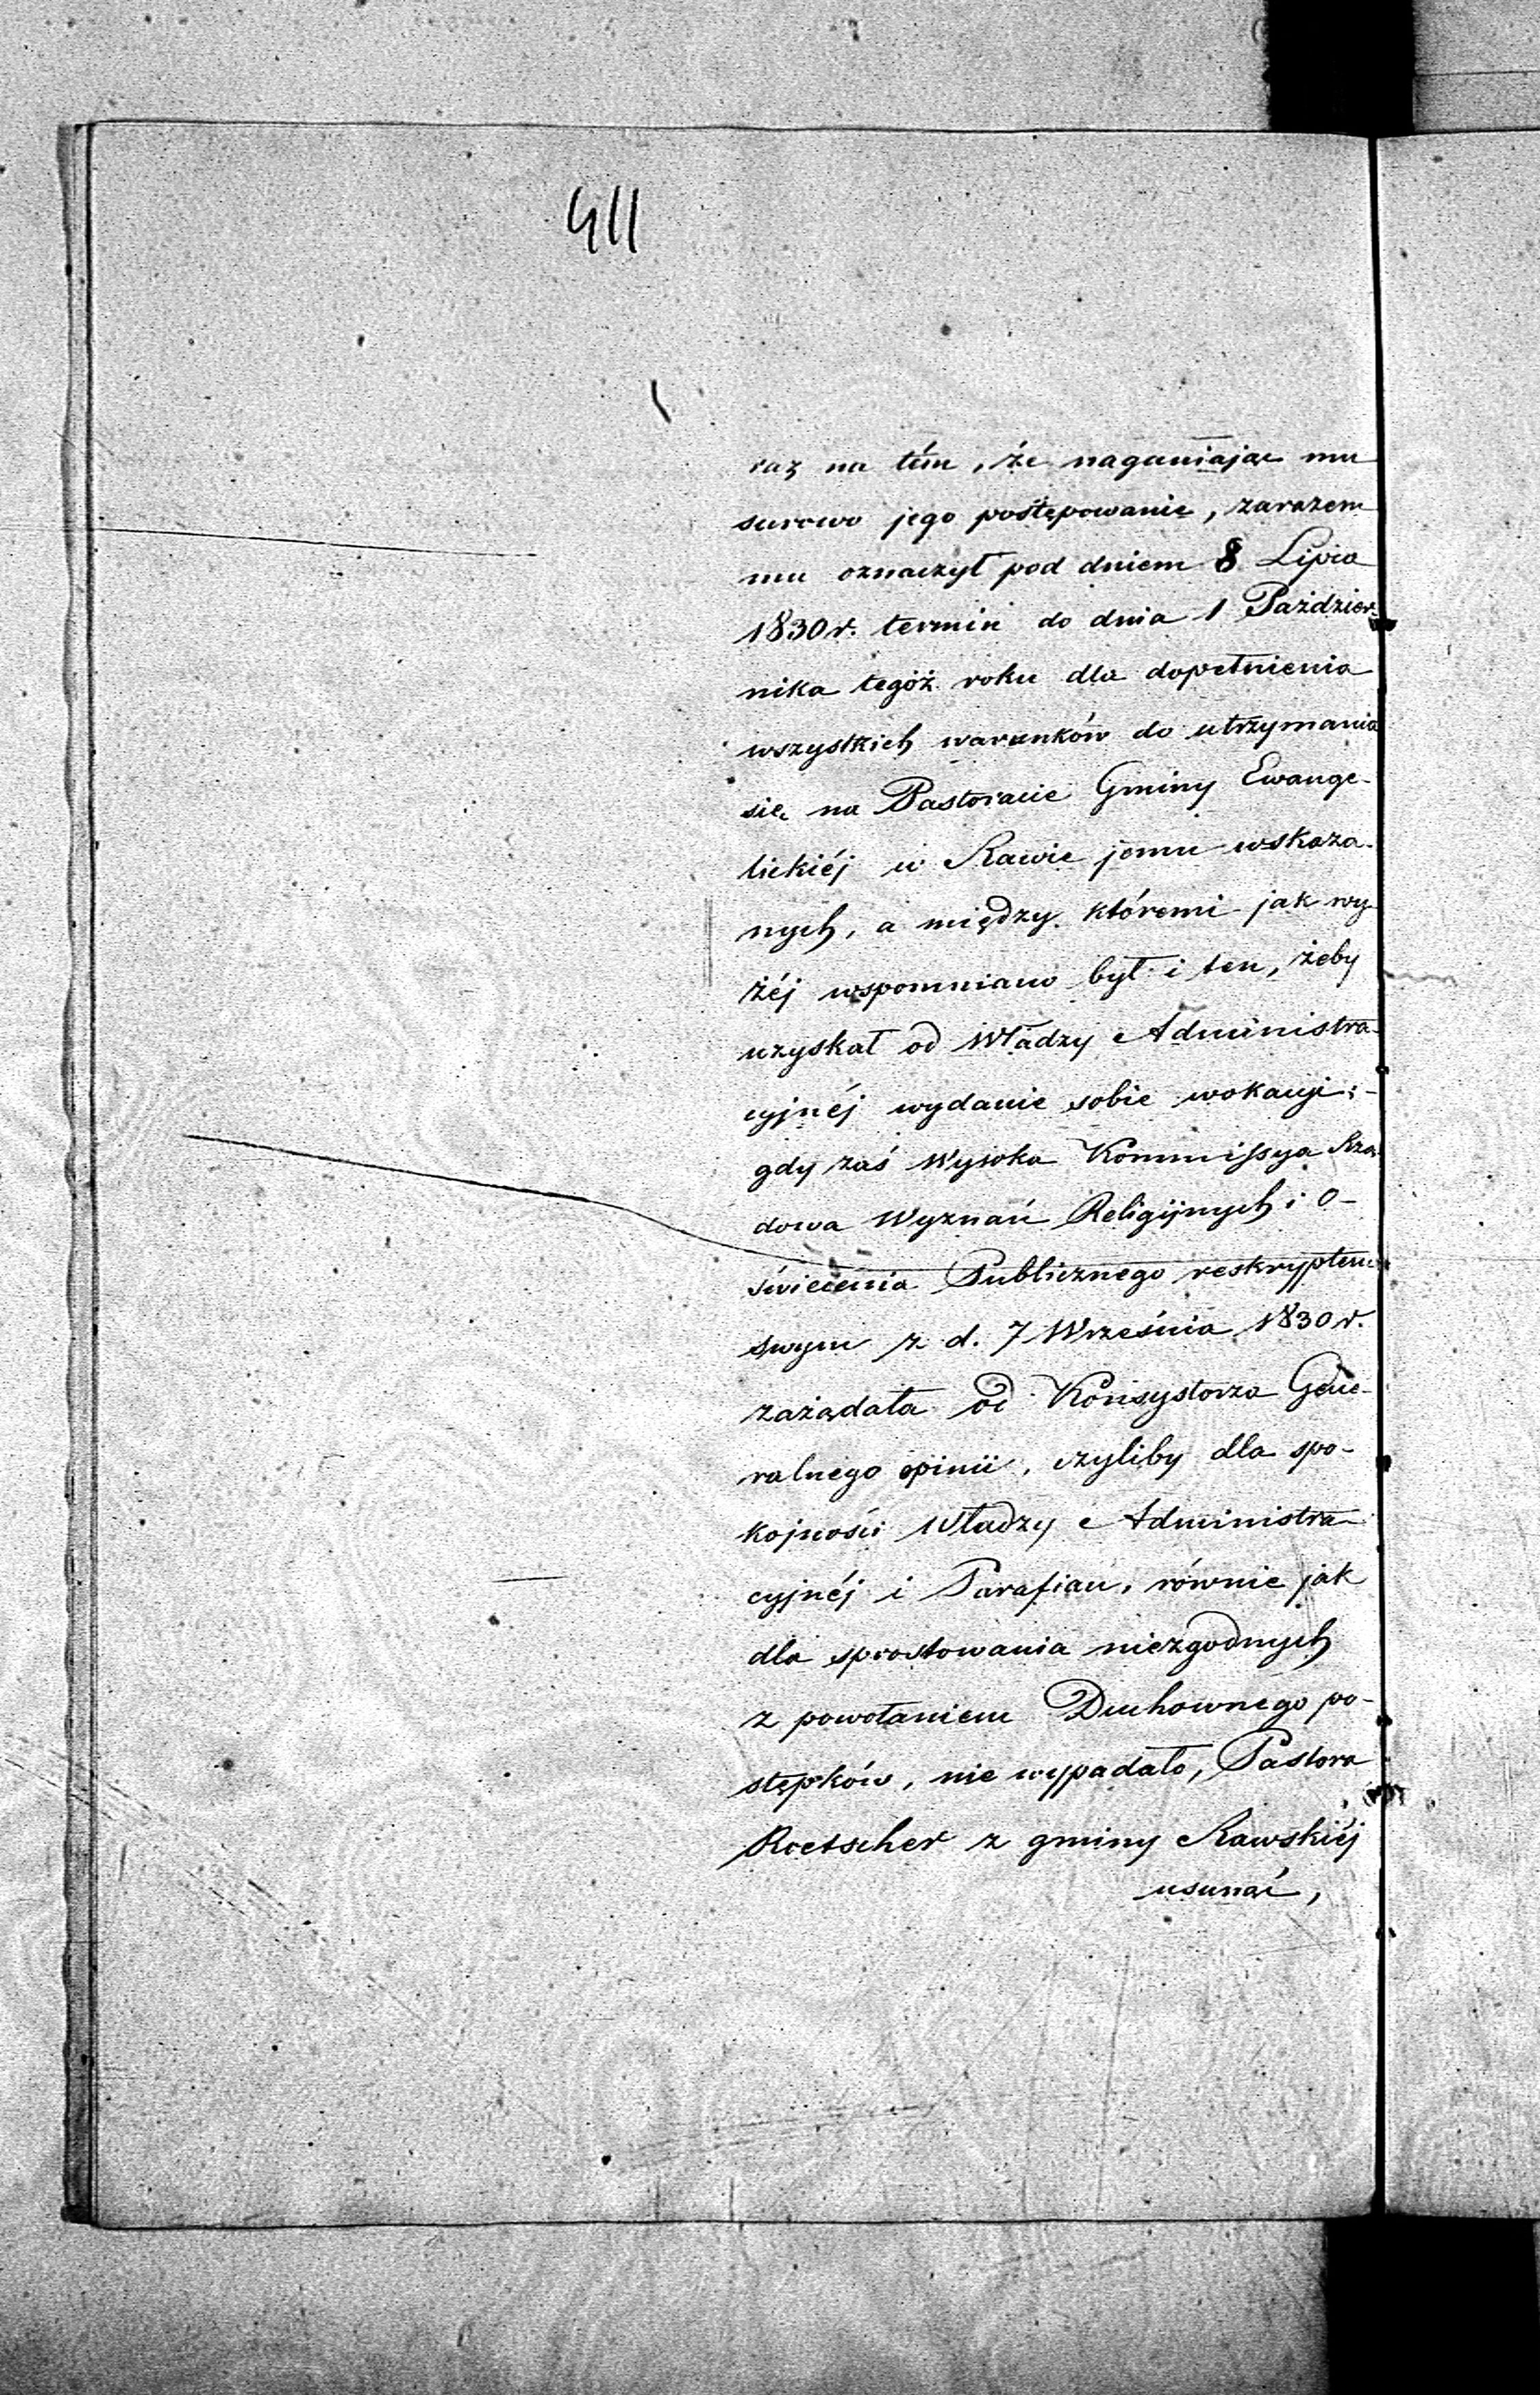 411
raz na tém, że naganiając mu
surowo jego postępowanie, zarazem
mu oznaczył pod dniem 8 Lipca
1830 r. termin do dnia 1 Paździer-
nika tegóż roku dla dopełnienia
wszystkich warunków do utrzymania
się na Pastoracie Gminy Ewange-
lickiéj w Rawie jemu wskaza-
nych, a między któremi jak wy-
żéj wspomniano był i ten, żeby
uzyskał od Władzy Administra-
cyjnéj wydanie sobie wokacyi;-
gdy zaś Wysoka Kommissya Rzą-
dowa Wyznań Religijnych i O-
świecenia Publicznego reskryptem
swym z d. 7 Września 1830 r.
zażądała od Konsystorza Gene-
ralnego opinii, czyliby dla spo-
kojności Władzy Administra-
cyjnéj i Parafian, równie jak
dla sprostowania niezgodnych
z powołaniem Duchownego po-
stępków, nie wypadało, Pastora
Roetscher z gminy Rawskiéj
usunąć,